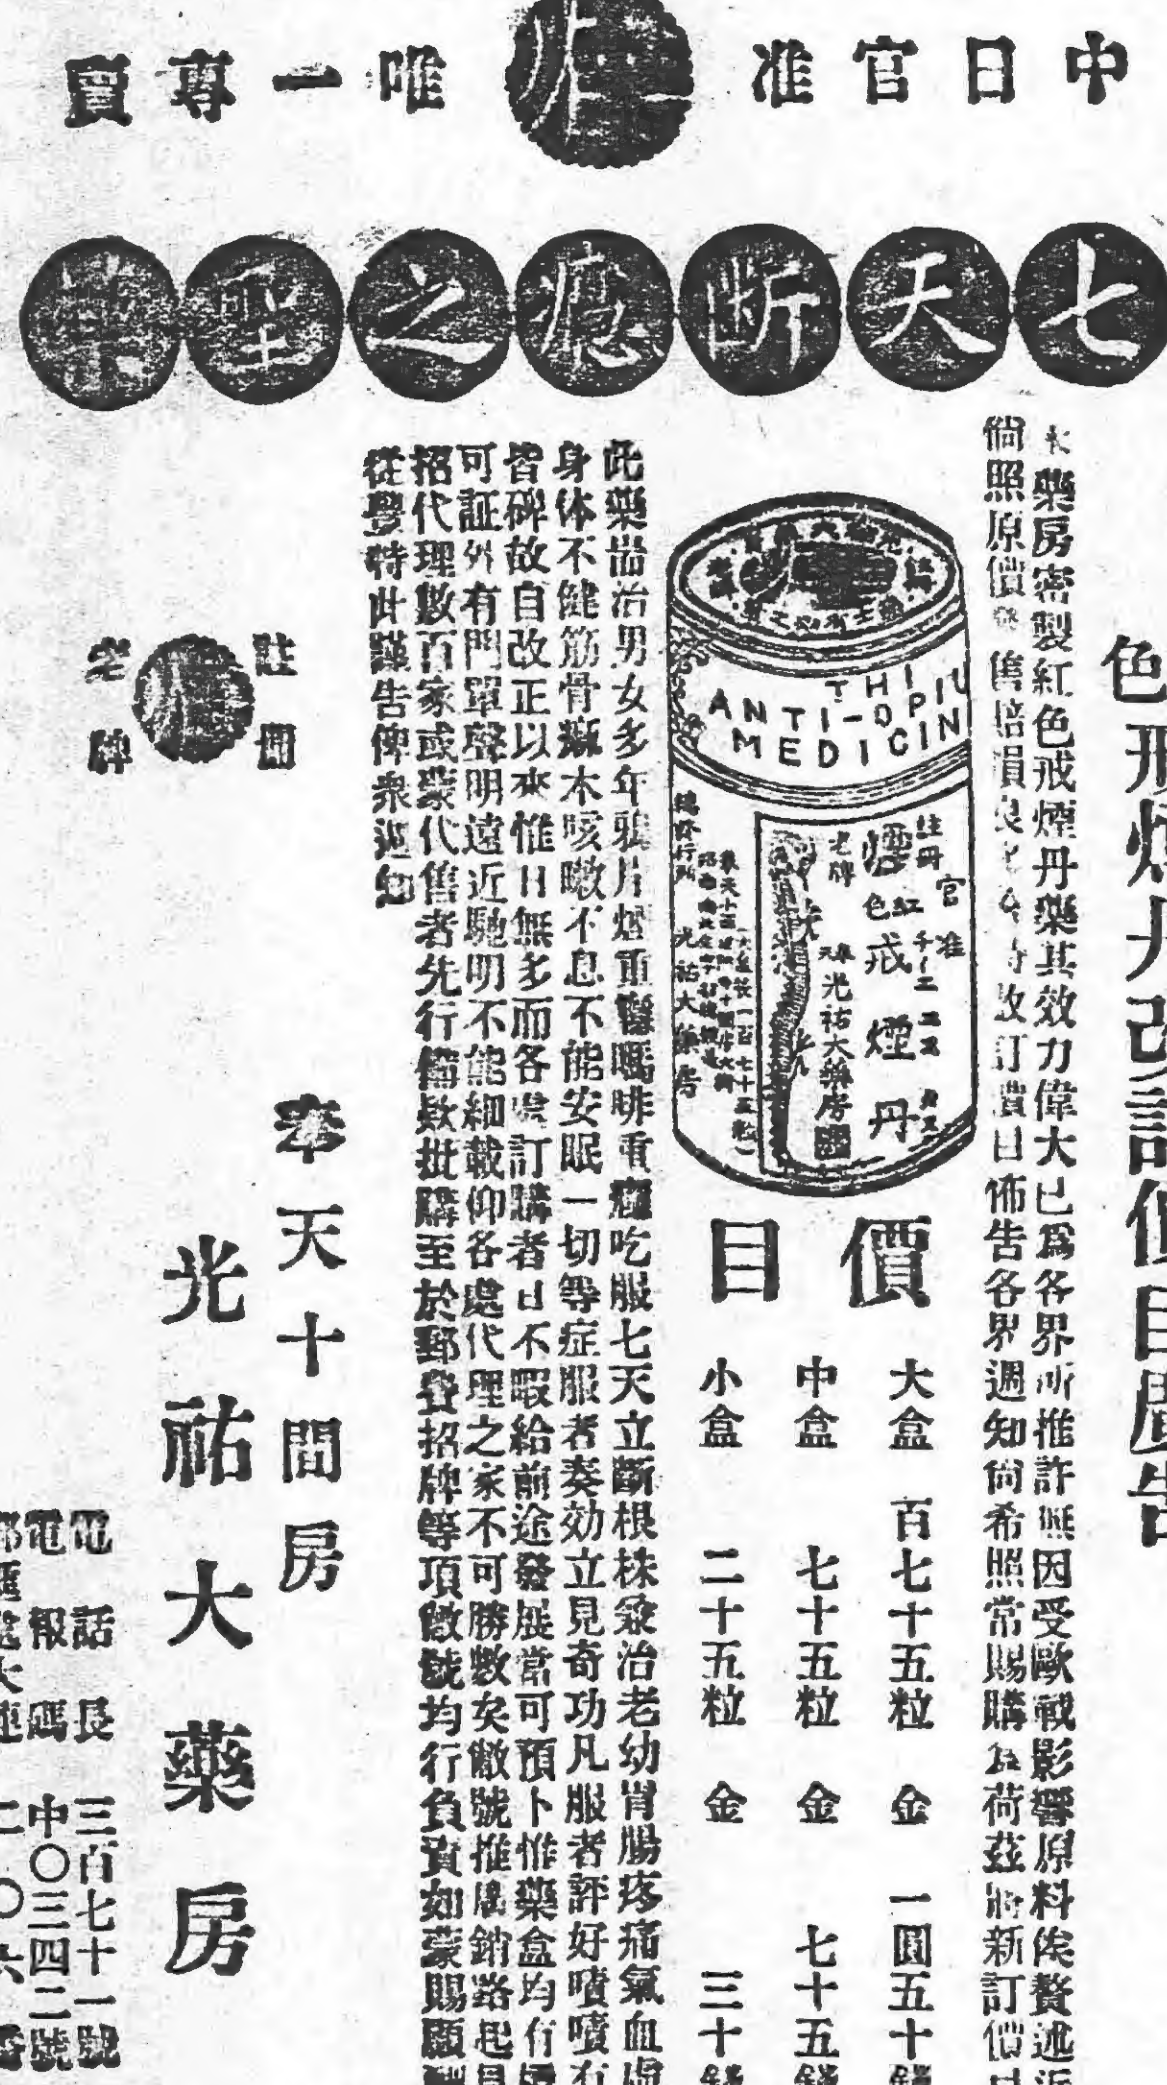 中日官准
唯一專賣
七天斷癮之聖藥
色戒煙丹改訂價目廣告
藥房密製紅色戒煙丹藥其效力偉大已為各界所推許無因受歐戰影響原料俟贅述近
倘照原價發售賠損良改訂價目佈告各界週知尚希照常賜購為荷茲將新訂價目
THI
ANTI-OPIU
MEDICIN
註冊
老牌
官准
紅色戒煙丹
奉天光祐大藥房
總發行所
光祐大藥房
價目
大盒 百七十五粒 金 一圓五十錢
中盒 七十五粒 金 七十五錢
小盒 二十五粒 金 三十錢
此藥耑治男女多年鴉片煙重癮嗎啡重癮吃服七天立斷根株兼治老幼胃腸疼痛氣血虛
身体不健筋骨癱木咳嗽不息不能安眠一切等症服者奏効立見奇功凡服者評好嘖嘖有
皆碑故自改正以來惟日無多而各處訂購者日不暇給前途發展當可預卜惟藥盒均有
可証外有門單聲明遠近馳明不能細載仰各處代理之家不可勝數矣敝號推廣銷路起見
招代理數百家或蒙代售者先行備欵批購至於郵費招牌等項敝號均行負責如蒙賜顧
從豐特此謹告俾衆週知
註冊
老牌
奉天十間房
光祐大藥房
電話長三百七十一號
電報碼中〇三四二號